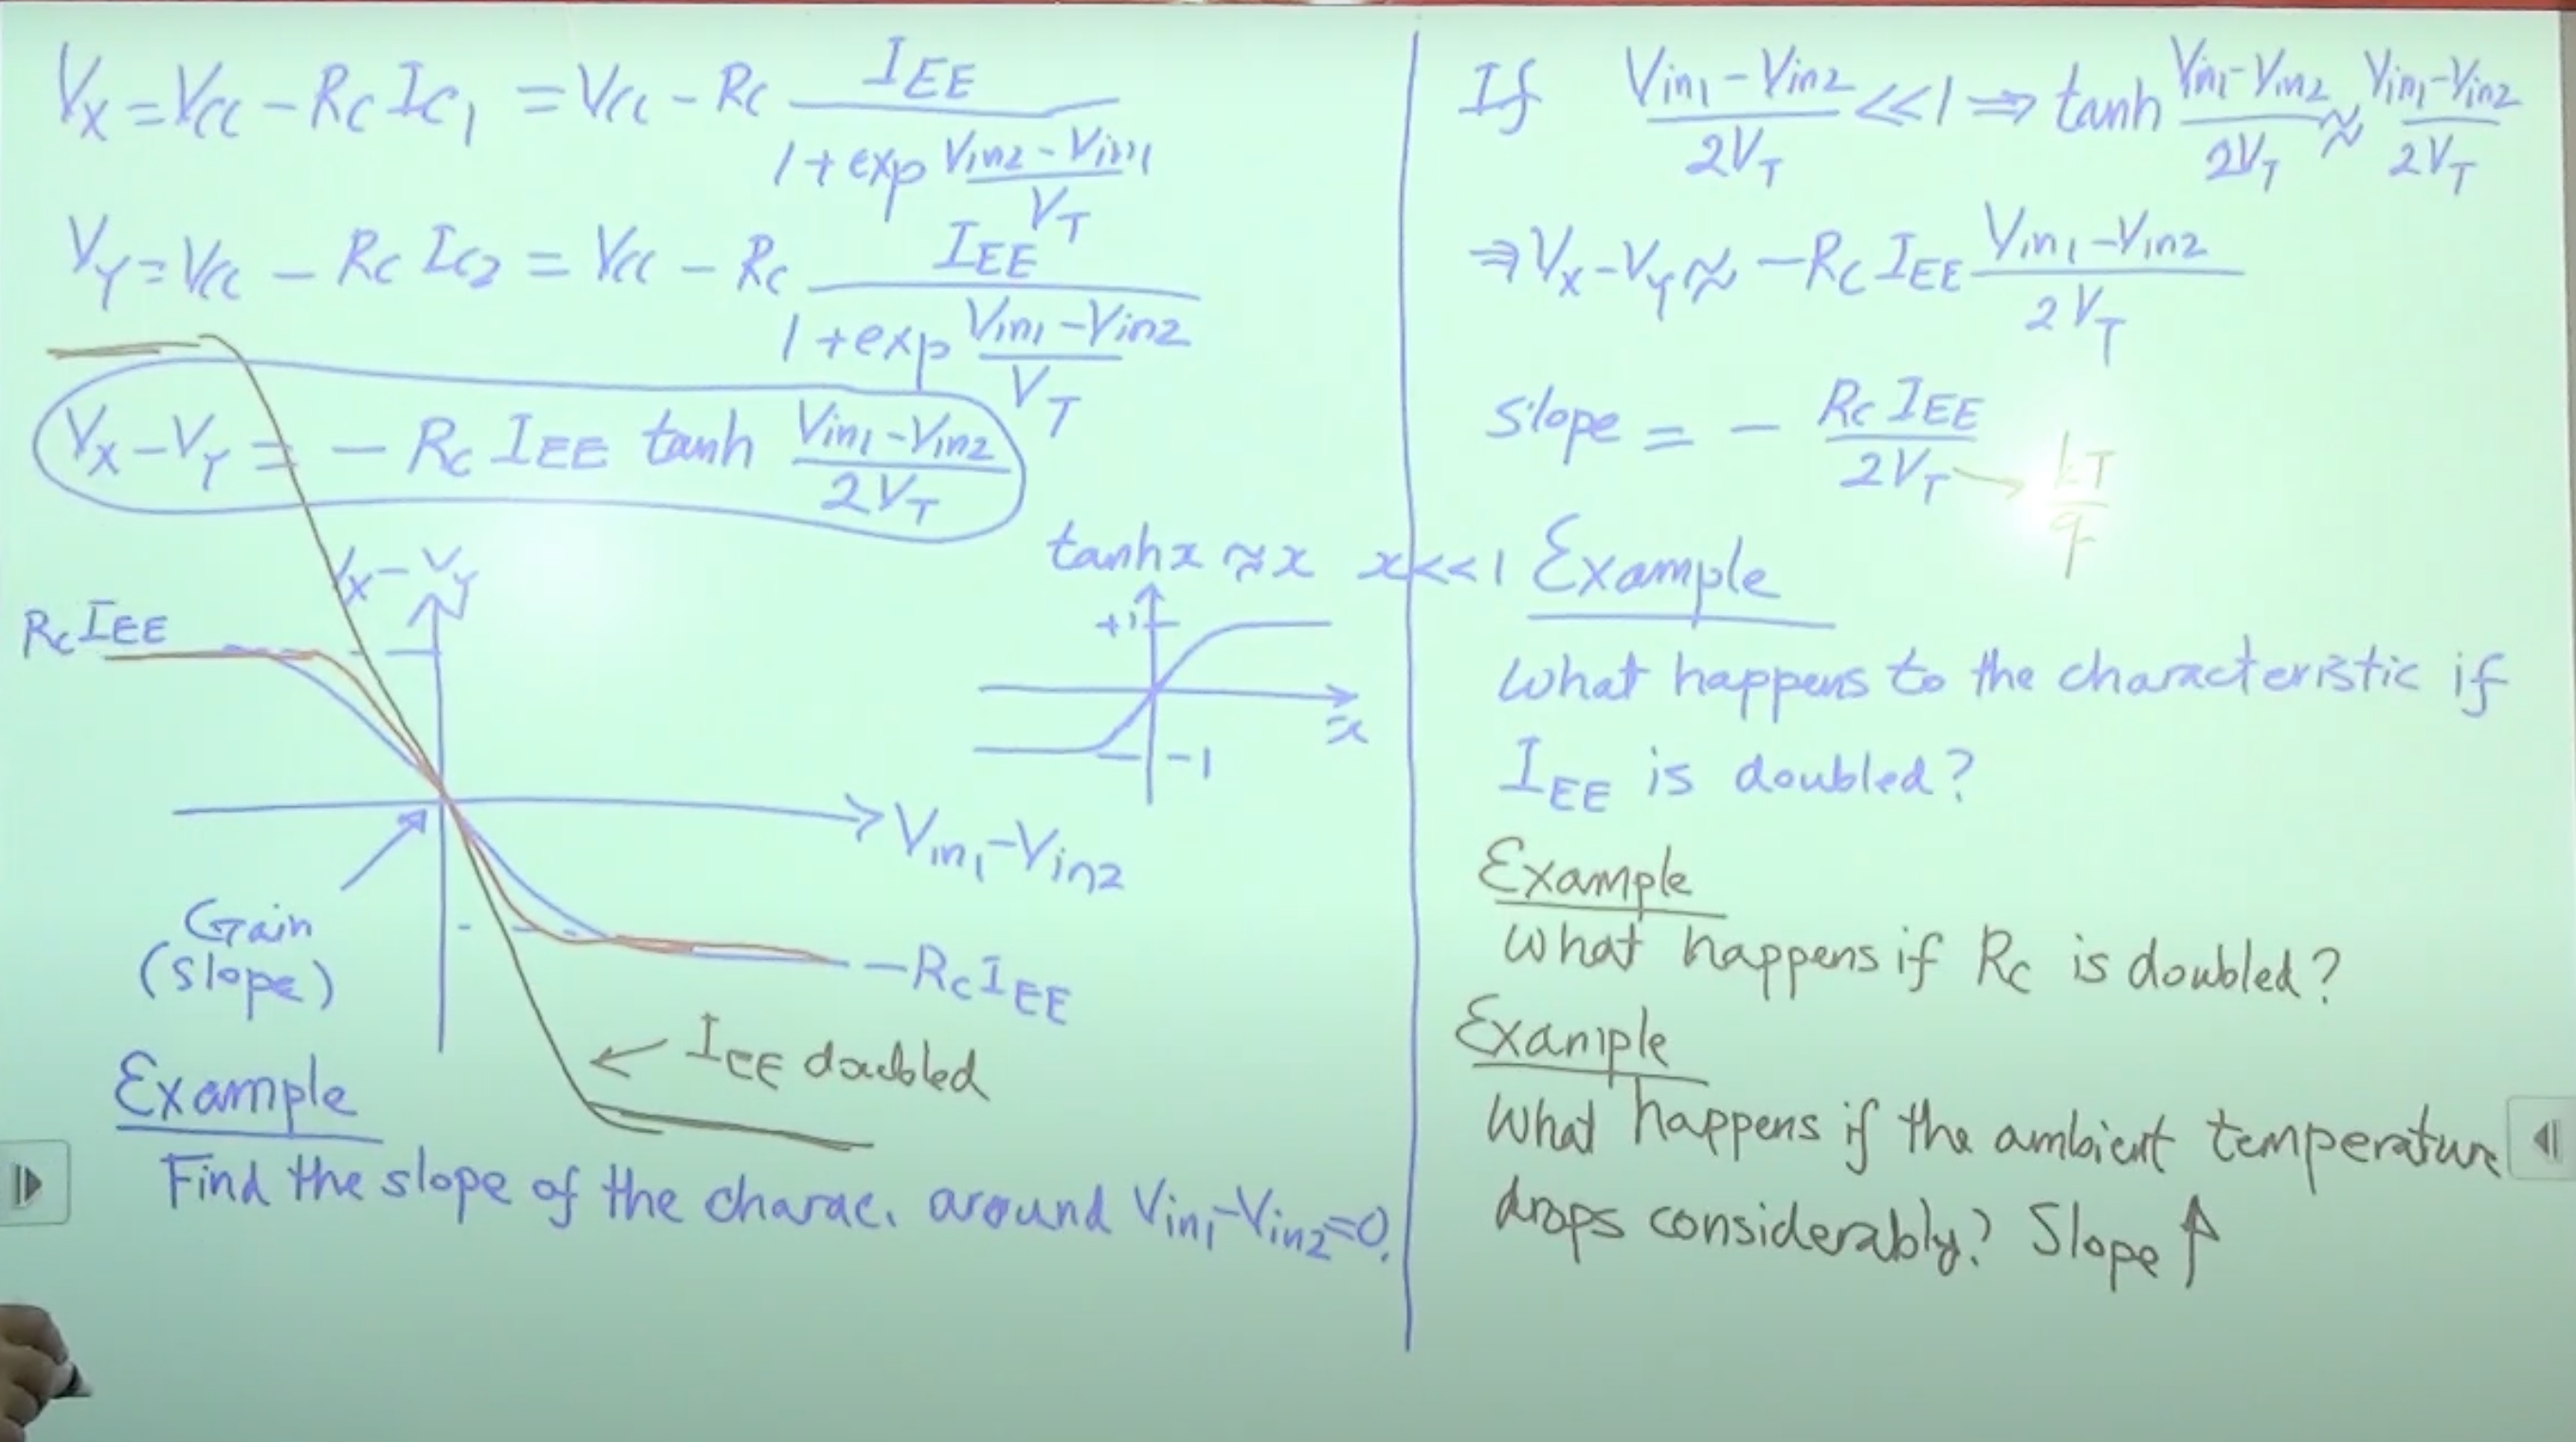 V_X = V_CC - R_C I_C1 = V_CC - R_C I_EE / (1 + exp (V_in2 - V_in1) / V_T)
V_Y = V_CC - R_C I_C2 = V_CC - R_C I_EE / (1 + exp (V_in1 - V_in2) / V_T)
V_X - V_Y = - R_C I_EE tanh (V_in1 - V_in2) / 2V_T
tanh x ≈ x x << 1
+1
x
-1
V_X - V_Y
R_C I_EE
V_in1 - V_in2
Gain
(slope)
- R_C I_EE
← I_EE doubled
Example
Find the slope of the charac. around V_in1 - V_in2 = 0.
If (V_in1 - V_in2) / 2V_T << 1 ⇒ tanh (V_in1 - V_in2) / 2V_T ≈ (V_in1 - V_in2) / 2V_T
⇒ V_X - V_Y ≈ - R_C I_EE (V_in1 - V_in2) / 2V_T
Slope = - R_C I_EE / 2V_T → kT / q
Example
What happens to the characteristic if
I_EE is doubled?
Example
What happens if R_C is doubled?
Example
What happens if the ambient temperature
drops considerably? Slope ↑